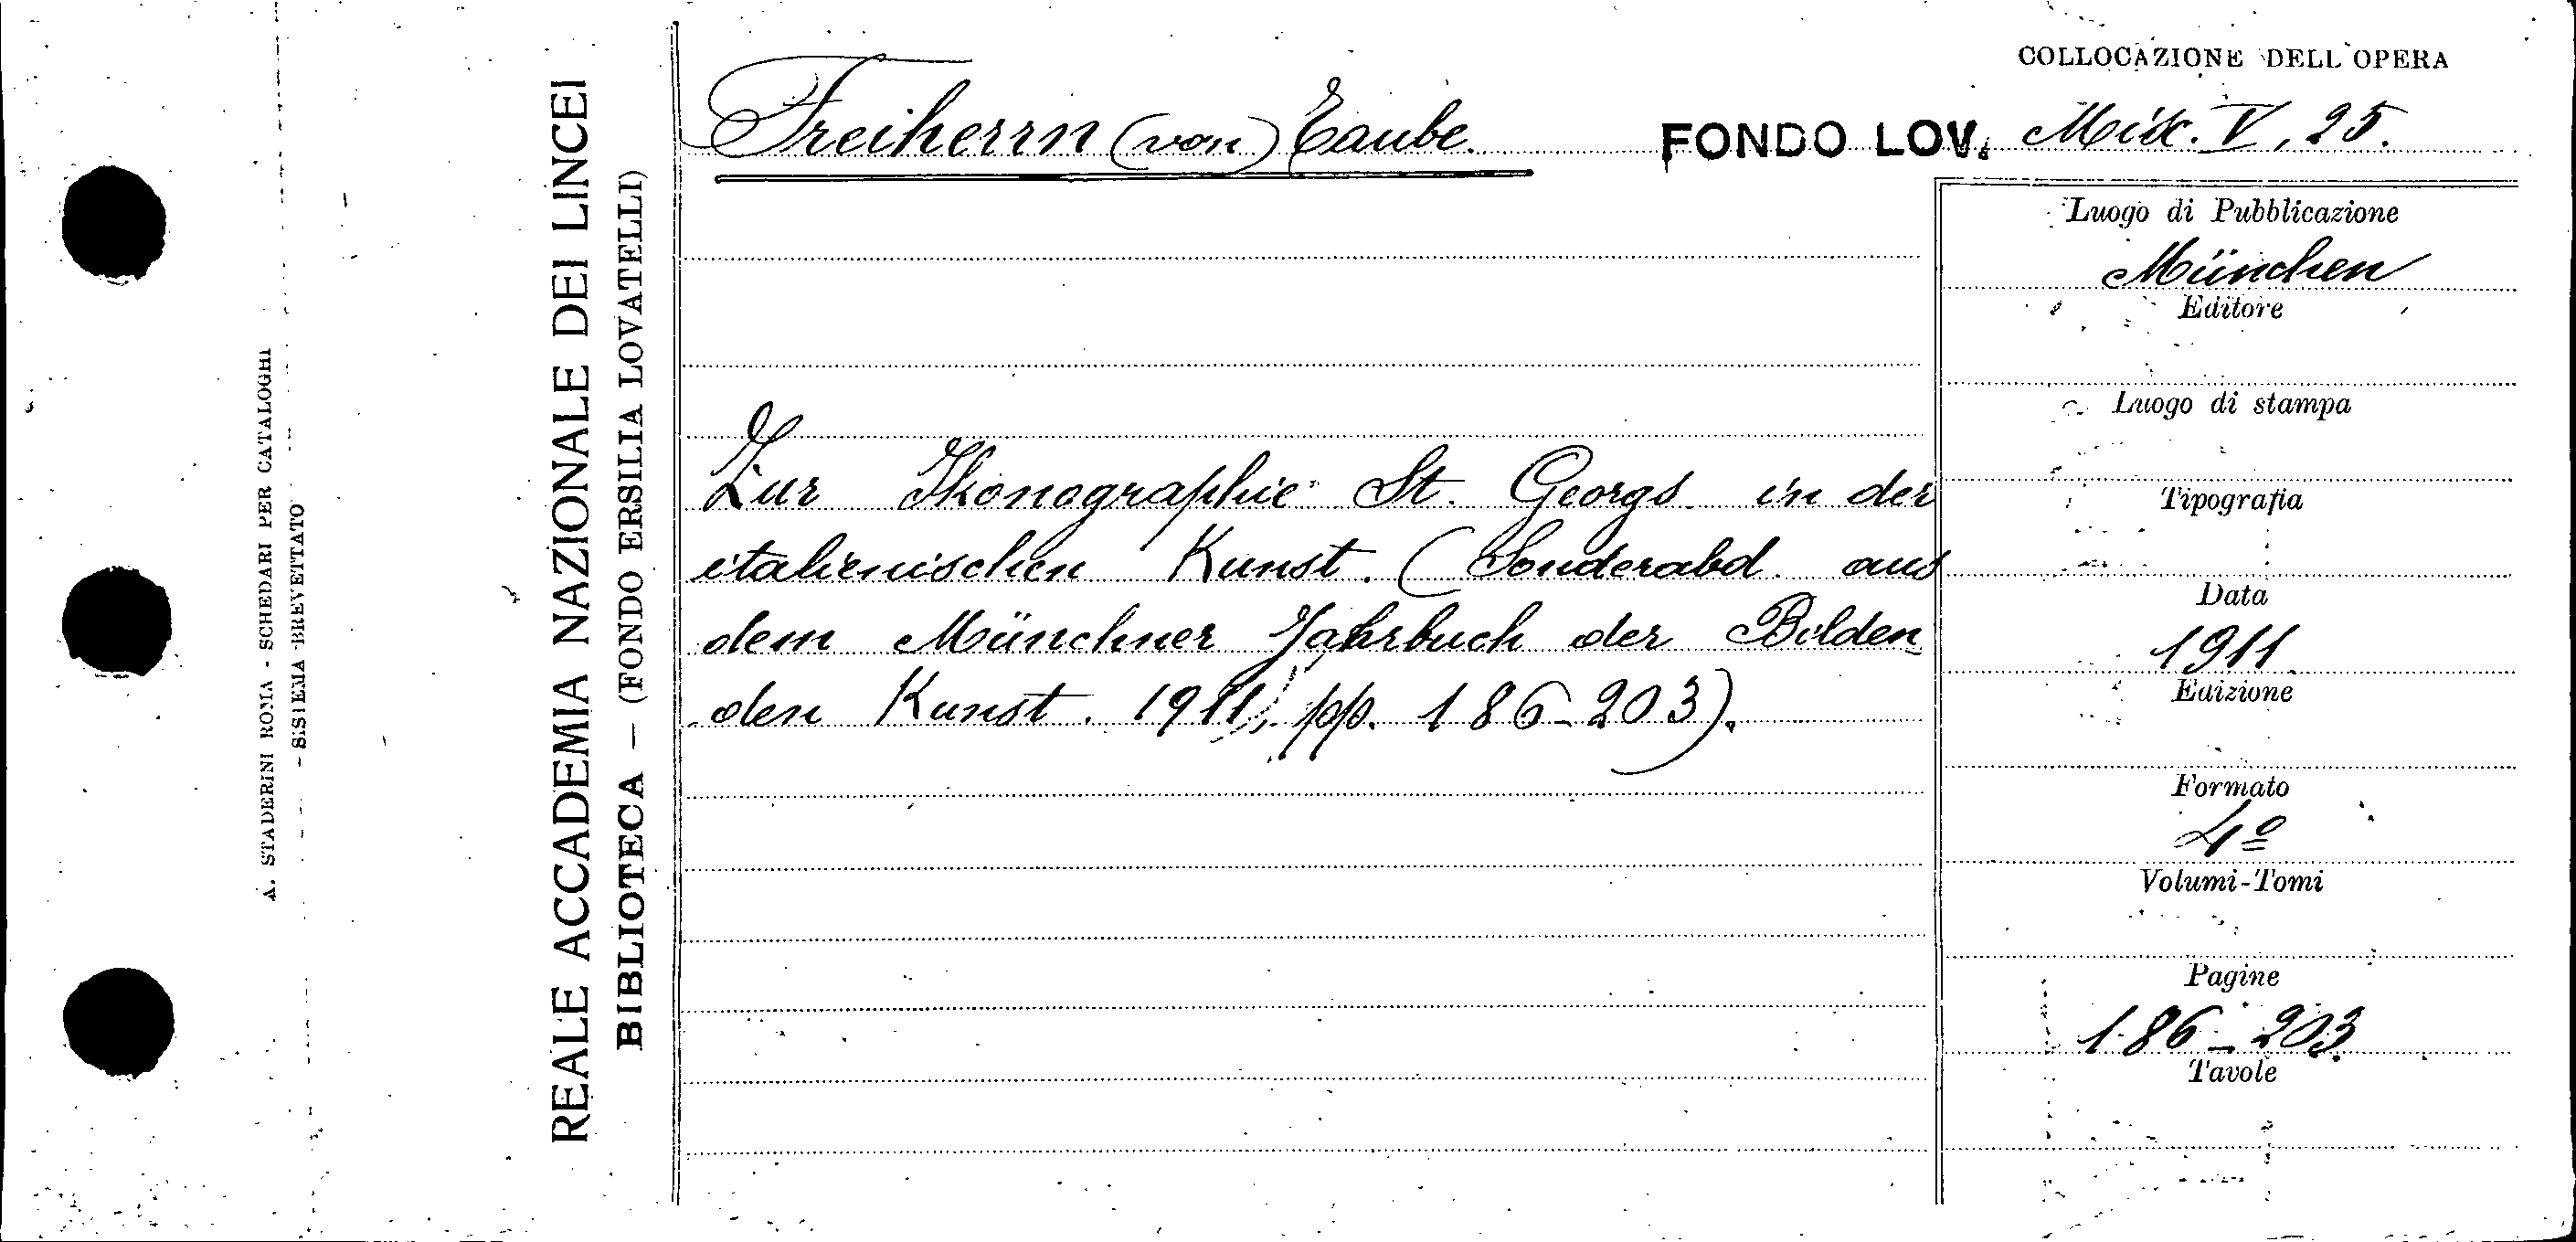 COLLOCAZIONE DELL'OPERA
Freiherrn (von) Taube.
FONDO LOV. Misc. V, 25.
Zur Ikonographie St. Georgs in der
italienischen Kunst. (Sonderabd. aus
dem Münchner Jahrbuch der Bilden-
den Kunst. 1911, pp. 186-203).
Luogo di Pubblicazione
München
Editore
Luogo di stampa
Tipografia
Data
1911
Edizione
Formato
4º
Volumi-Tomi
Pagine
186-203
Tavole
REALE ACCADEMIA NAZIONALE DEI LINCEI
BIBLIOTECA — (FONDO ERSILIA LOVATELLI)
A. STADERINI ROMA - SCHEDARI PER CATALOGHI
- SISTEMA BREVETTATO -